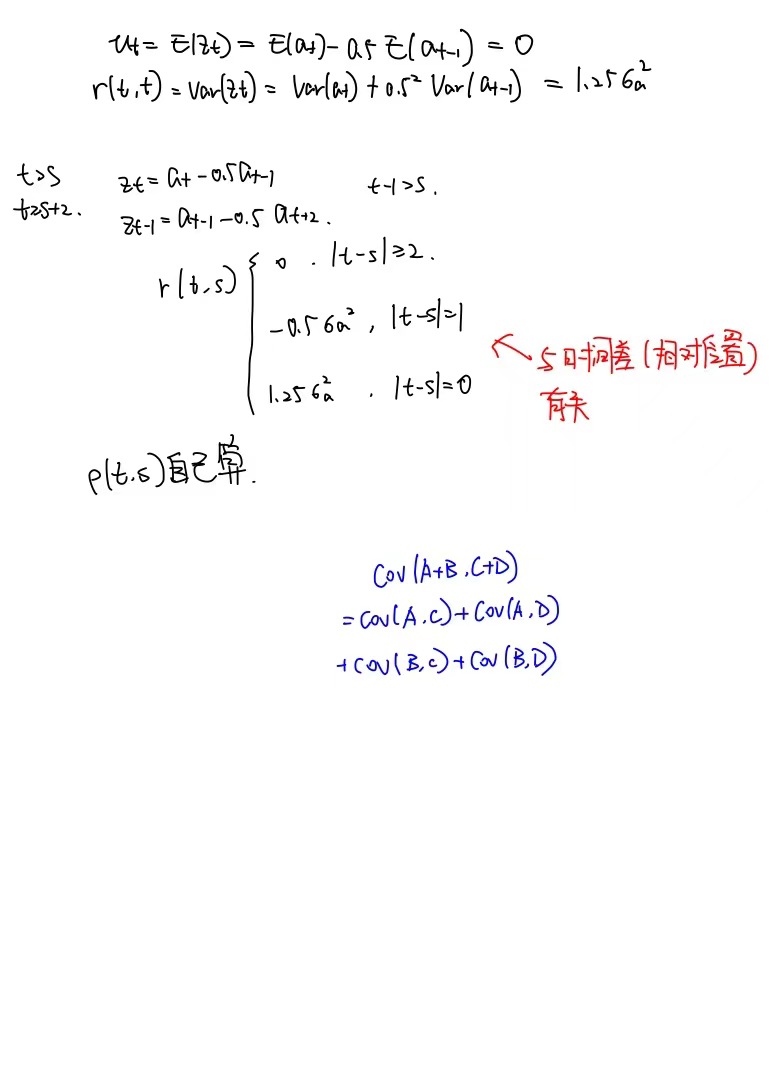 μt = E(zt) = E(at) - 0.5 E(at-1) = 0
r(t,t) = Var(zt) = Var(at) + 0.5² Var(at-1) = 1.25σa²
t>s zt = at - 0.5at-1 t-1>s.
t≥s+2. zt-1 = at-1 - 0.5 at+2.
r(t,s) { 0 . |t-s|≥2.
-0.5σa² , |t-s|=1
1.25σa² . |t-s|=0
与时间差(相对位置)
有关
ρ(t.s)自己算.
Cov(A+B,C+D)
= Cov(A,C)+Cov(A,D)
+Cov(B,C)+Cov(B,D)